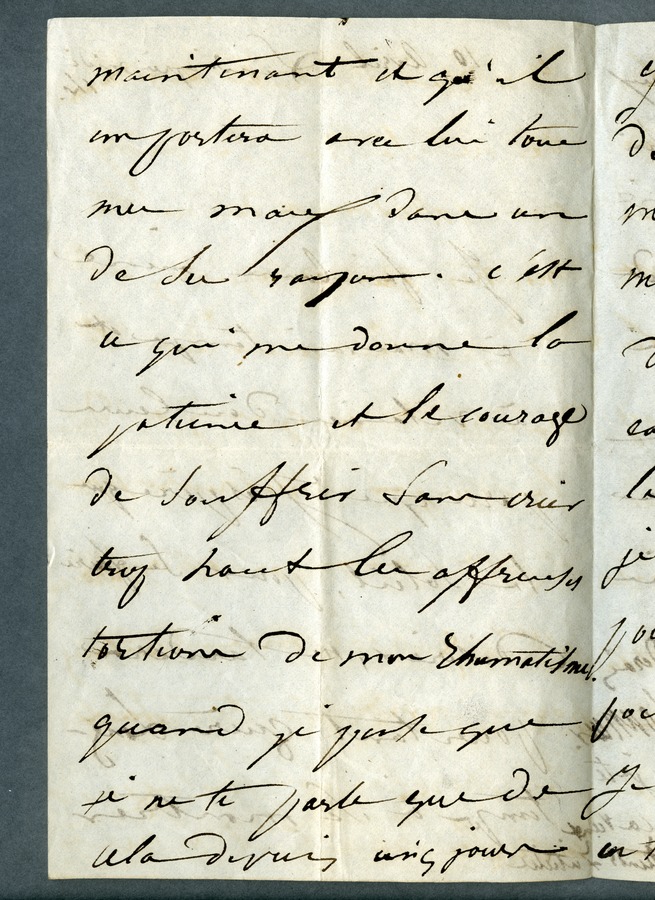 maintenant et qu'il
emportera avec lui tous
mes maux dans un
de ses rayons. c'est
ce qui me donne la
patience et le courage
de souffrir sans crier
trop haut les affreuses
tortures de mon Rhumatisme.
quand je pense que
je ne te parle que de
cela depuis cinq jours